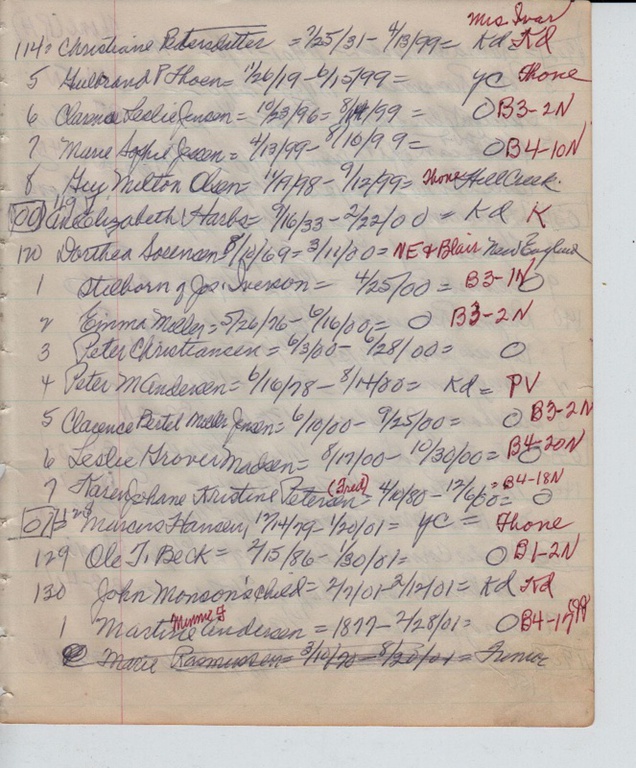 Mrs Ivar
114 = Christiane = 7/25/31 - 4/13/99 = Kd Kd
5 P Thoen = 11/26/19 - 6/15/99 = yc Thone
6 Clarence Leslie Jensen = 10/23/96 = 8/ /99 O B3-2N
7 Marie Sophie Jessen = 4/13/99 - 8/10/99 = O B4-10N
8 Guy Milton Olsen = 9/98 - 9/12/99 = Thone Hill Creek.
00 119 Elizabeth Harbs = 9/16/33 - 2/22/00 = Kd K
120 Dorthea Sorensen = 8/10/69 = 3/11/00 = NE & Blair New England
1 Stilborn of Jos. Iverson = 4/25/00 = B3-1N O
2 Emma Miller = 5/26/76 - 6/16/00 = O B3-2N
3 Peter Christiansen = 6/3/00 - 6/28/00 = O
4 Peter M Andersen = 6/16/78 - 8/14/00 = Kd = PV
5 Clarence Bertel Miller Jensen = 6/10/00 - 9/25/00 = O B3-2N
6 Leslie Grover Madsen = 8/17/00 - 10/30/00 = O B4-20N
7 Karen Johane Kristine Petersen (Fred) = 4/10/80 - 12/6/00 = O B4-18N
01 128 Marcus Hansen, 12/14/79 - 1/20/01 = yc = Thone
129 Ole T. Beck = 2/15/86 - 1/30/01 = O B1-2N
130 John Monson's child = 2/7/01 - 2/12/01 = Kd Kd
Minnie F
1 Martine Andersen = 1877 - 2/28/01 = O B4-17
Marie Rasmussen = 3/10/70 - 8/20/01 =